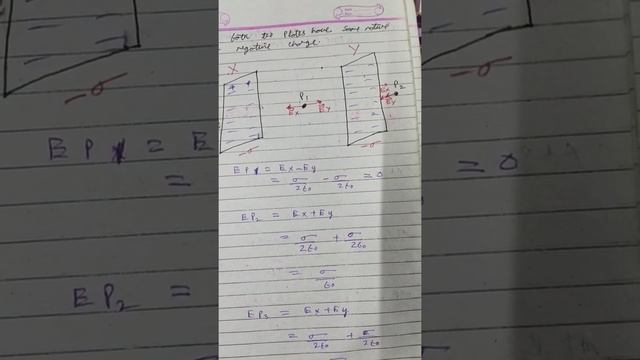 both the Plates have same nature
negative charge.
X
Y
+ +
P1
Ex Ey
P2
Ex
Ey
-σ
-σ
EP1 = Ex-Ey
= σ/2ε0 - σ/2ε0 = 0
EP2 = Ex+Ey
= σ/2ε0 + σ/2ε0
= σ/ε0
EP3 = Ex+Ey
= σ/2ε0 + σ/2ε0